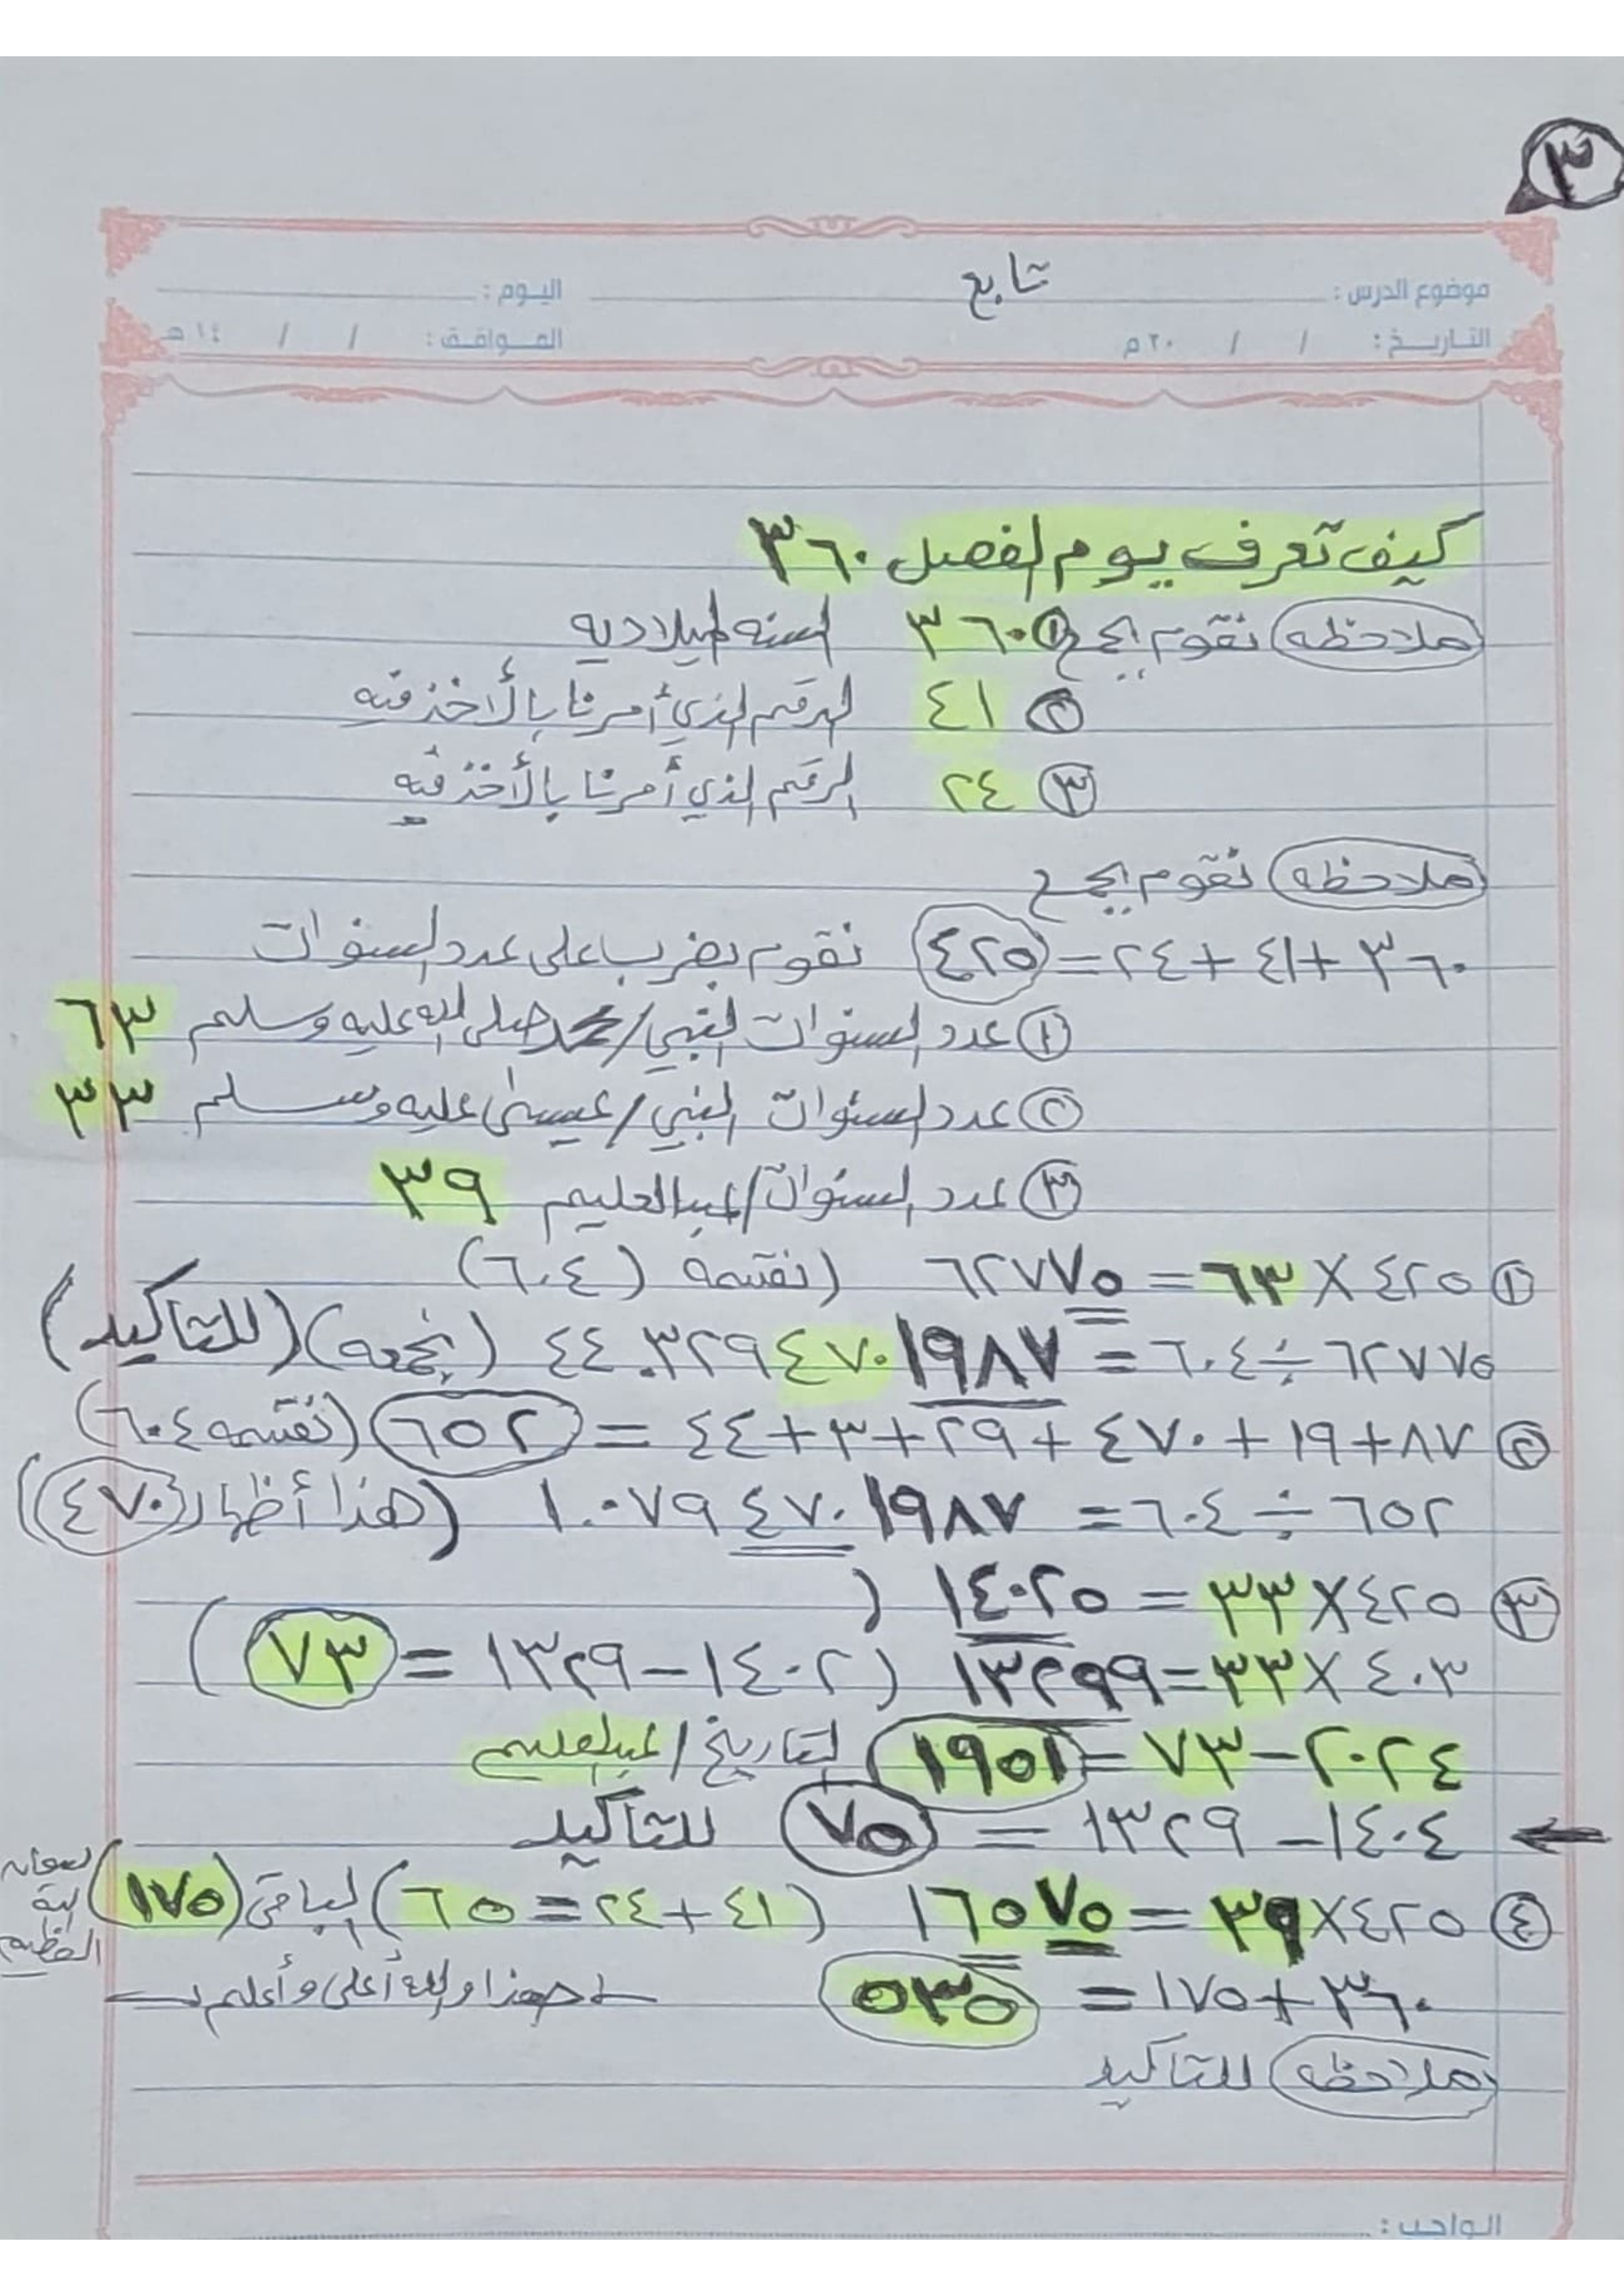 ٣
موضوع الدرس : تابع اليوم :
التاريخ : / / ٢٠م الموافق : / / ١٤هـ
كيف تعرف يوم الفصل ٣٦٠
ملاحظه نقوم بجمع ① ٣٦٠ السنه الميلاديه
② ٤١ الرقم الذي أمرنا بالأخذ فيه
③ ٢٤ الرقم الذي أمرنا بالأخذ فيه
ملاحظه نقوم بجمع
٣٦٠+٤١+٢٤=٤٢٥ نقوم بضرب على عدد السنوات
① عدد السنوات النبي/محمد صلى الله عليه وسلم ٦٣
② عدد السنوات النبي/عيسى عليه وسلم ٣٣
③ عدد السنوات/عبدالعليم ٣٩
① ٤٢٥×٦٣=٦٢٧٧٥ (نقسمه (٦٠٤)
٦٢٧٧٥÷٦٠٤=٤٤٠٣٢٩٤٧٠١٩٨٧ (بجمعه) (للتأكيد)
② ٨٧+١٩+٤٧٠+٢٩+٣+٤٤=٦٥٢ (نقسمه ٦٠٤)
٦٥٢÷٦٠٤=١٠٠٧٩٤٧٠١٩٨٧ (هذا أظهار ٤٧٠)
③ ٤٢٥×٣٣=١٤٠٢٥ (
٤٠٣×٣٣=١٣٢٩٩ (١٤٠٢-١٣٢٩=٧٣)
٢٠٢٤-٧٣=١٩٥١ التاريخ/عبدالعليم
← ١٤٠٤-١٣٢٩=٧٥ للتأكيد
④ ٤٢٥×٣٩=١٦٥٧٥ (٤١+٢٤=٦٥) الباقي (١٧٥)
العظيم
٣٦٠+١٧٥=٥٣٥ هذا والله أعلى وأعلم
ملاحظه للتاكيد
الواجب :